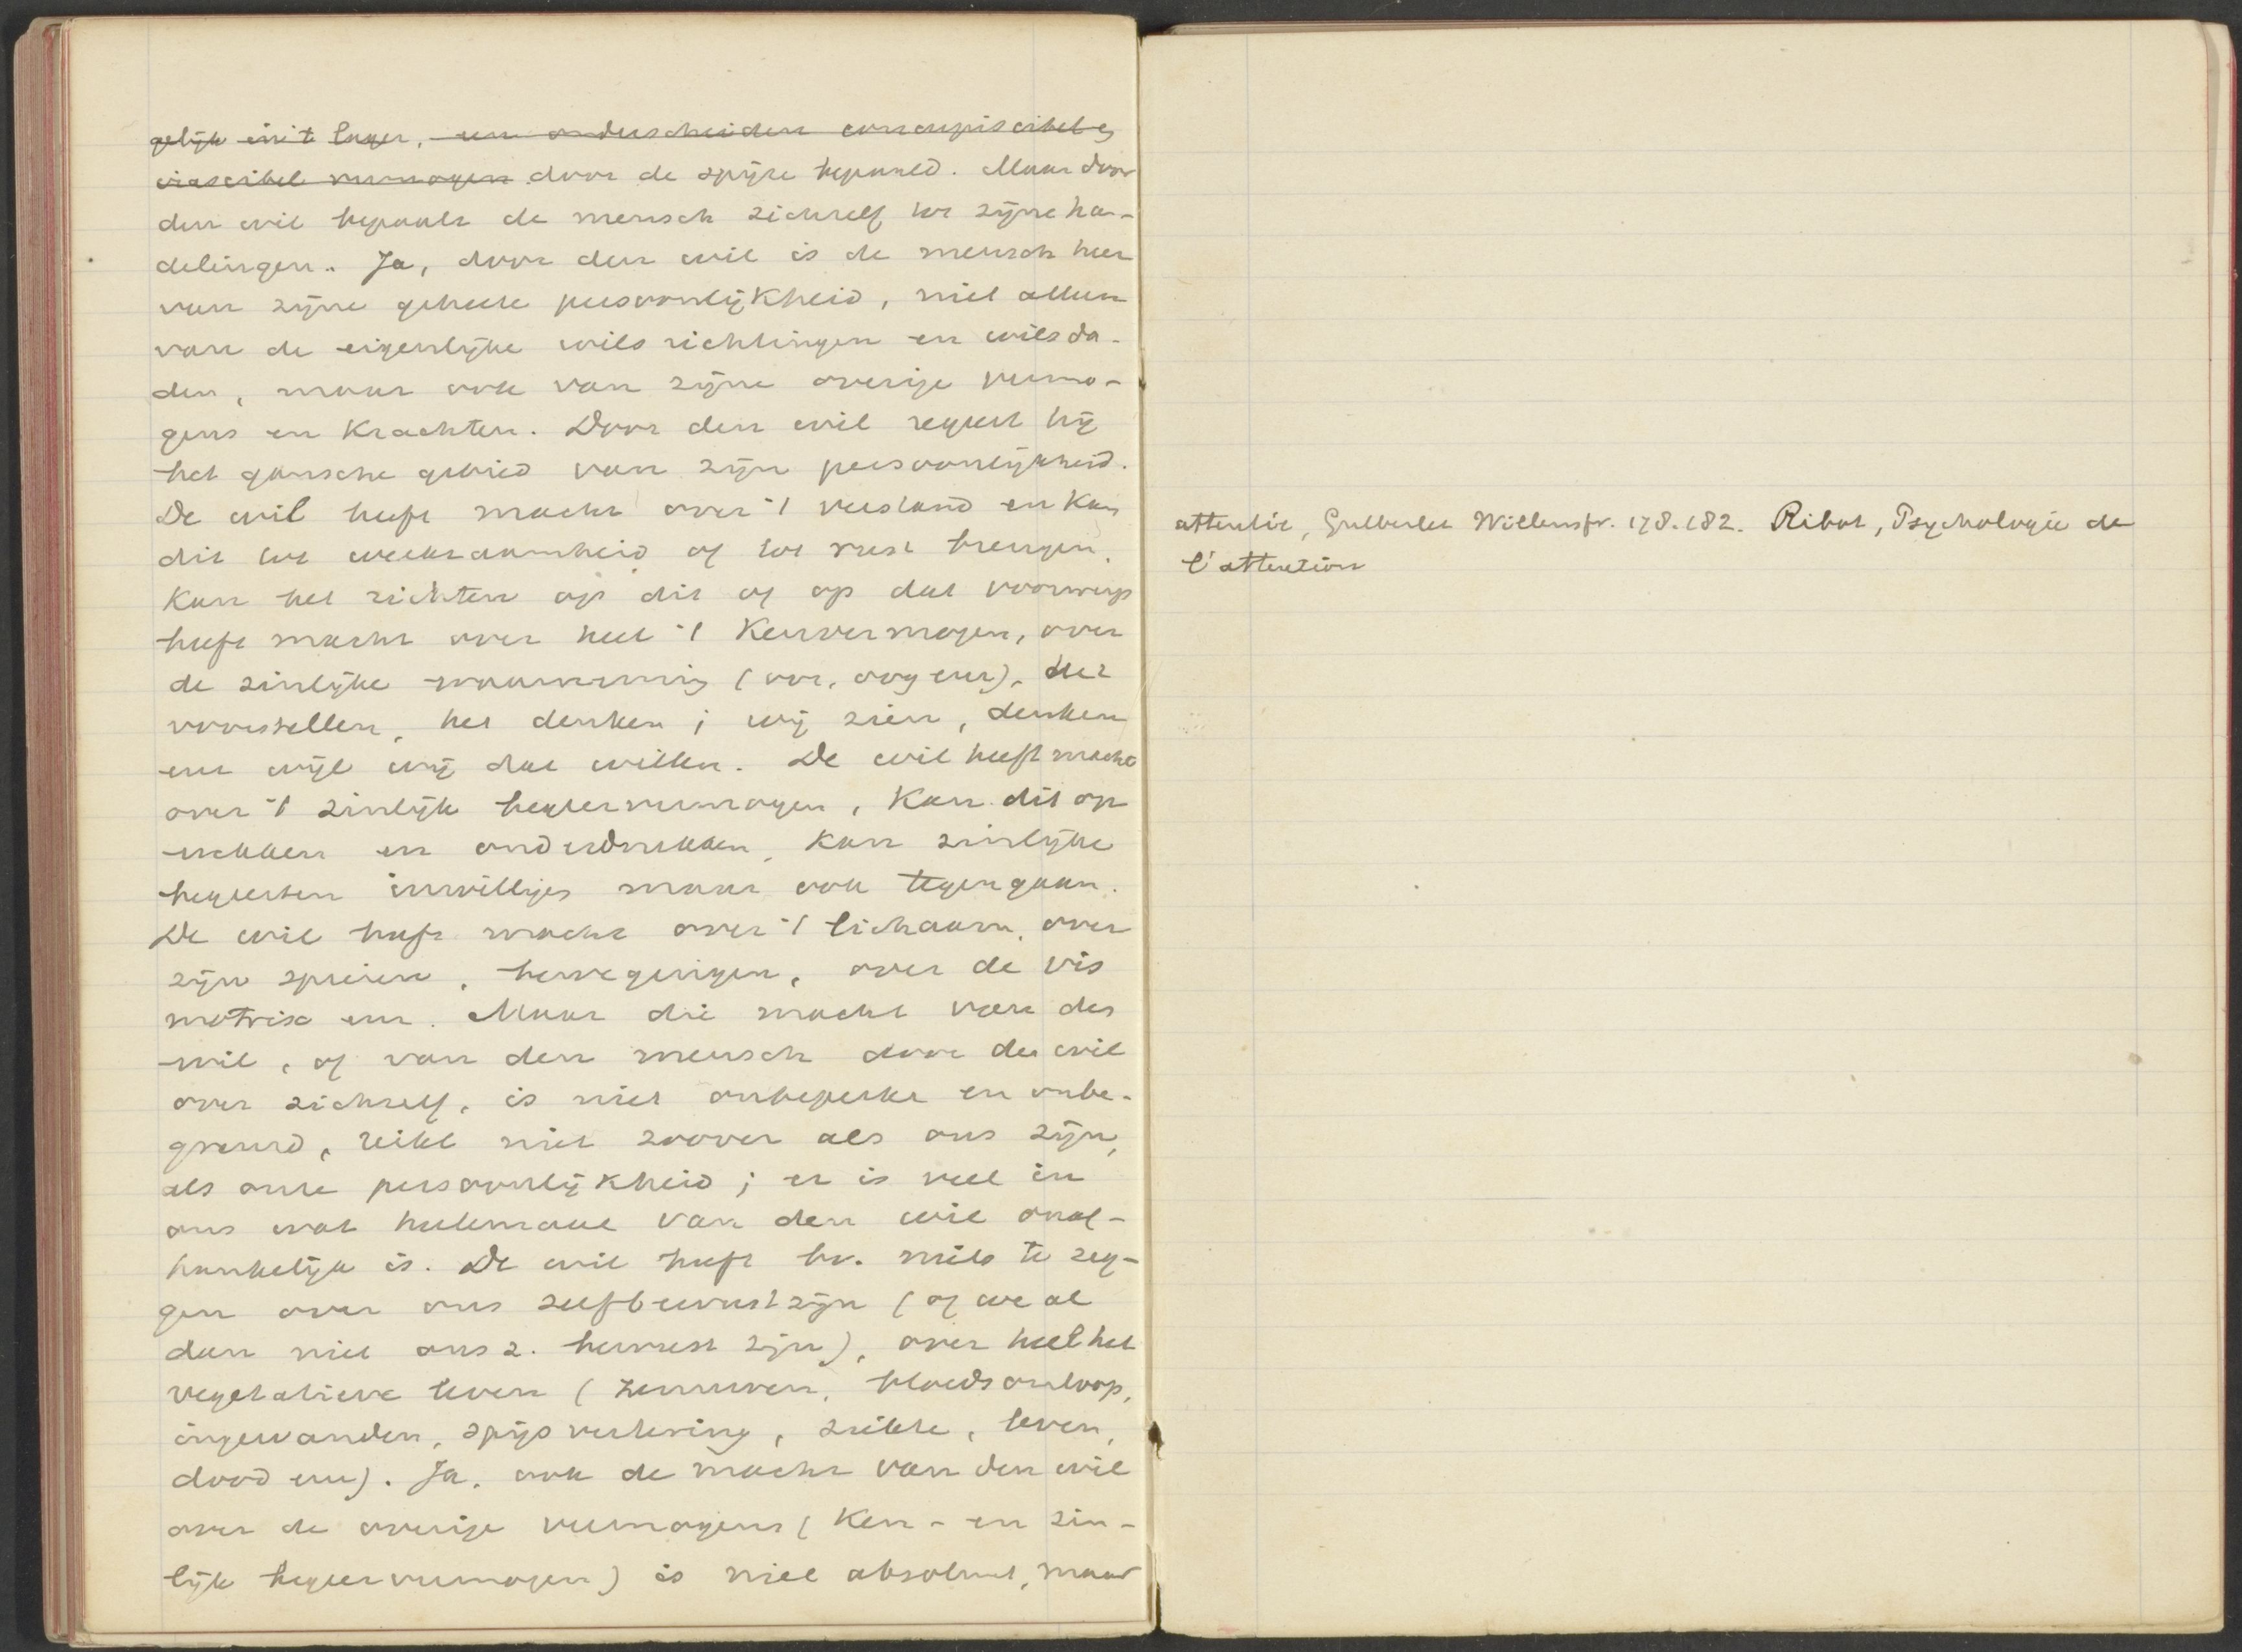 gelijk in 't lager, een onderscheiden concupiscibel en
irascibel vermogen door de spijze bepaald. Maar door
den wil bepaalt de mensch zichzelf tot zijne han-
delingen. Ja, door den wil is de mensch heer
van zijne geheele persoonlijkheid, niet alleen
van de eigenlijke wilsrichtingen en wilsda-
den, maar ook van zijne overige vermo-
gens en krachten. Door den wil regeert hij
het gansche gebied van zijn persoonlijkheid.
De wil heeft macht over 't verstand en kan
dit tot werkzaamheid of tot rust brengen,
kan het richten op dit of op dat voorwerp
heeft macht over heel 't kenvermogen, over
de zinlijke waarneming (oor, oog enz), het
voorstellen, het denken; wij zien, denken
enz wijl wij dat willen. De wil heeft macht
over 't zinlijk begeervermogen, kan dit op
wekken en onderdrukken, kan zinlijke
begeerten inwilligen maar ook tegengaan.
De wil heeft macht over 't lichaam, over
zijn spieren, bewegingen, over de vis
motrix enz. Maar die macht van den
wil, of van den mensch door den wil
over zichzelf, is niet onbeperkt en onbe-
grensd, reikt niet zoover als ons zijn,
als onze persoonlijkheid; er is veel in
ons wat heelemaal van den wil onaf-
hankelijk is. De wil heeft bv. niets te zeg-
gen over ons zelfbewustzijn (of we al
dan niet ons z. bewust zijn), over heel het
vegetatieve leven (zenuwen, bloedsomloop,
ingewanden, spijsvertering, ziekte, leven,
dood enz). Ja, ook de macht van den wil
over de overige vermogens (ken- en zin-
lijk begeervermogen) is niet absoluut, maar
attentie, Gutberlet Willensfr. 178.182. Ribot, Psychologie de
l'attention